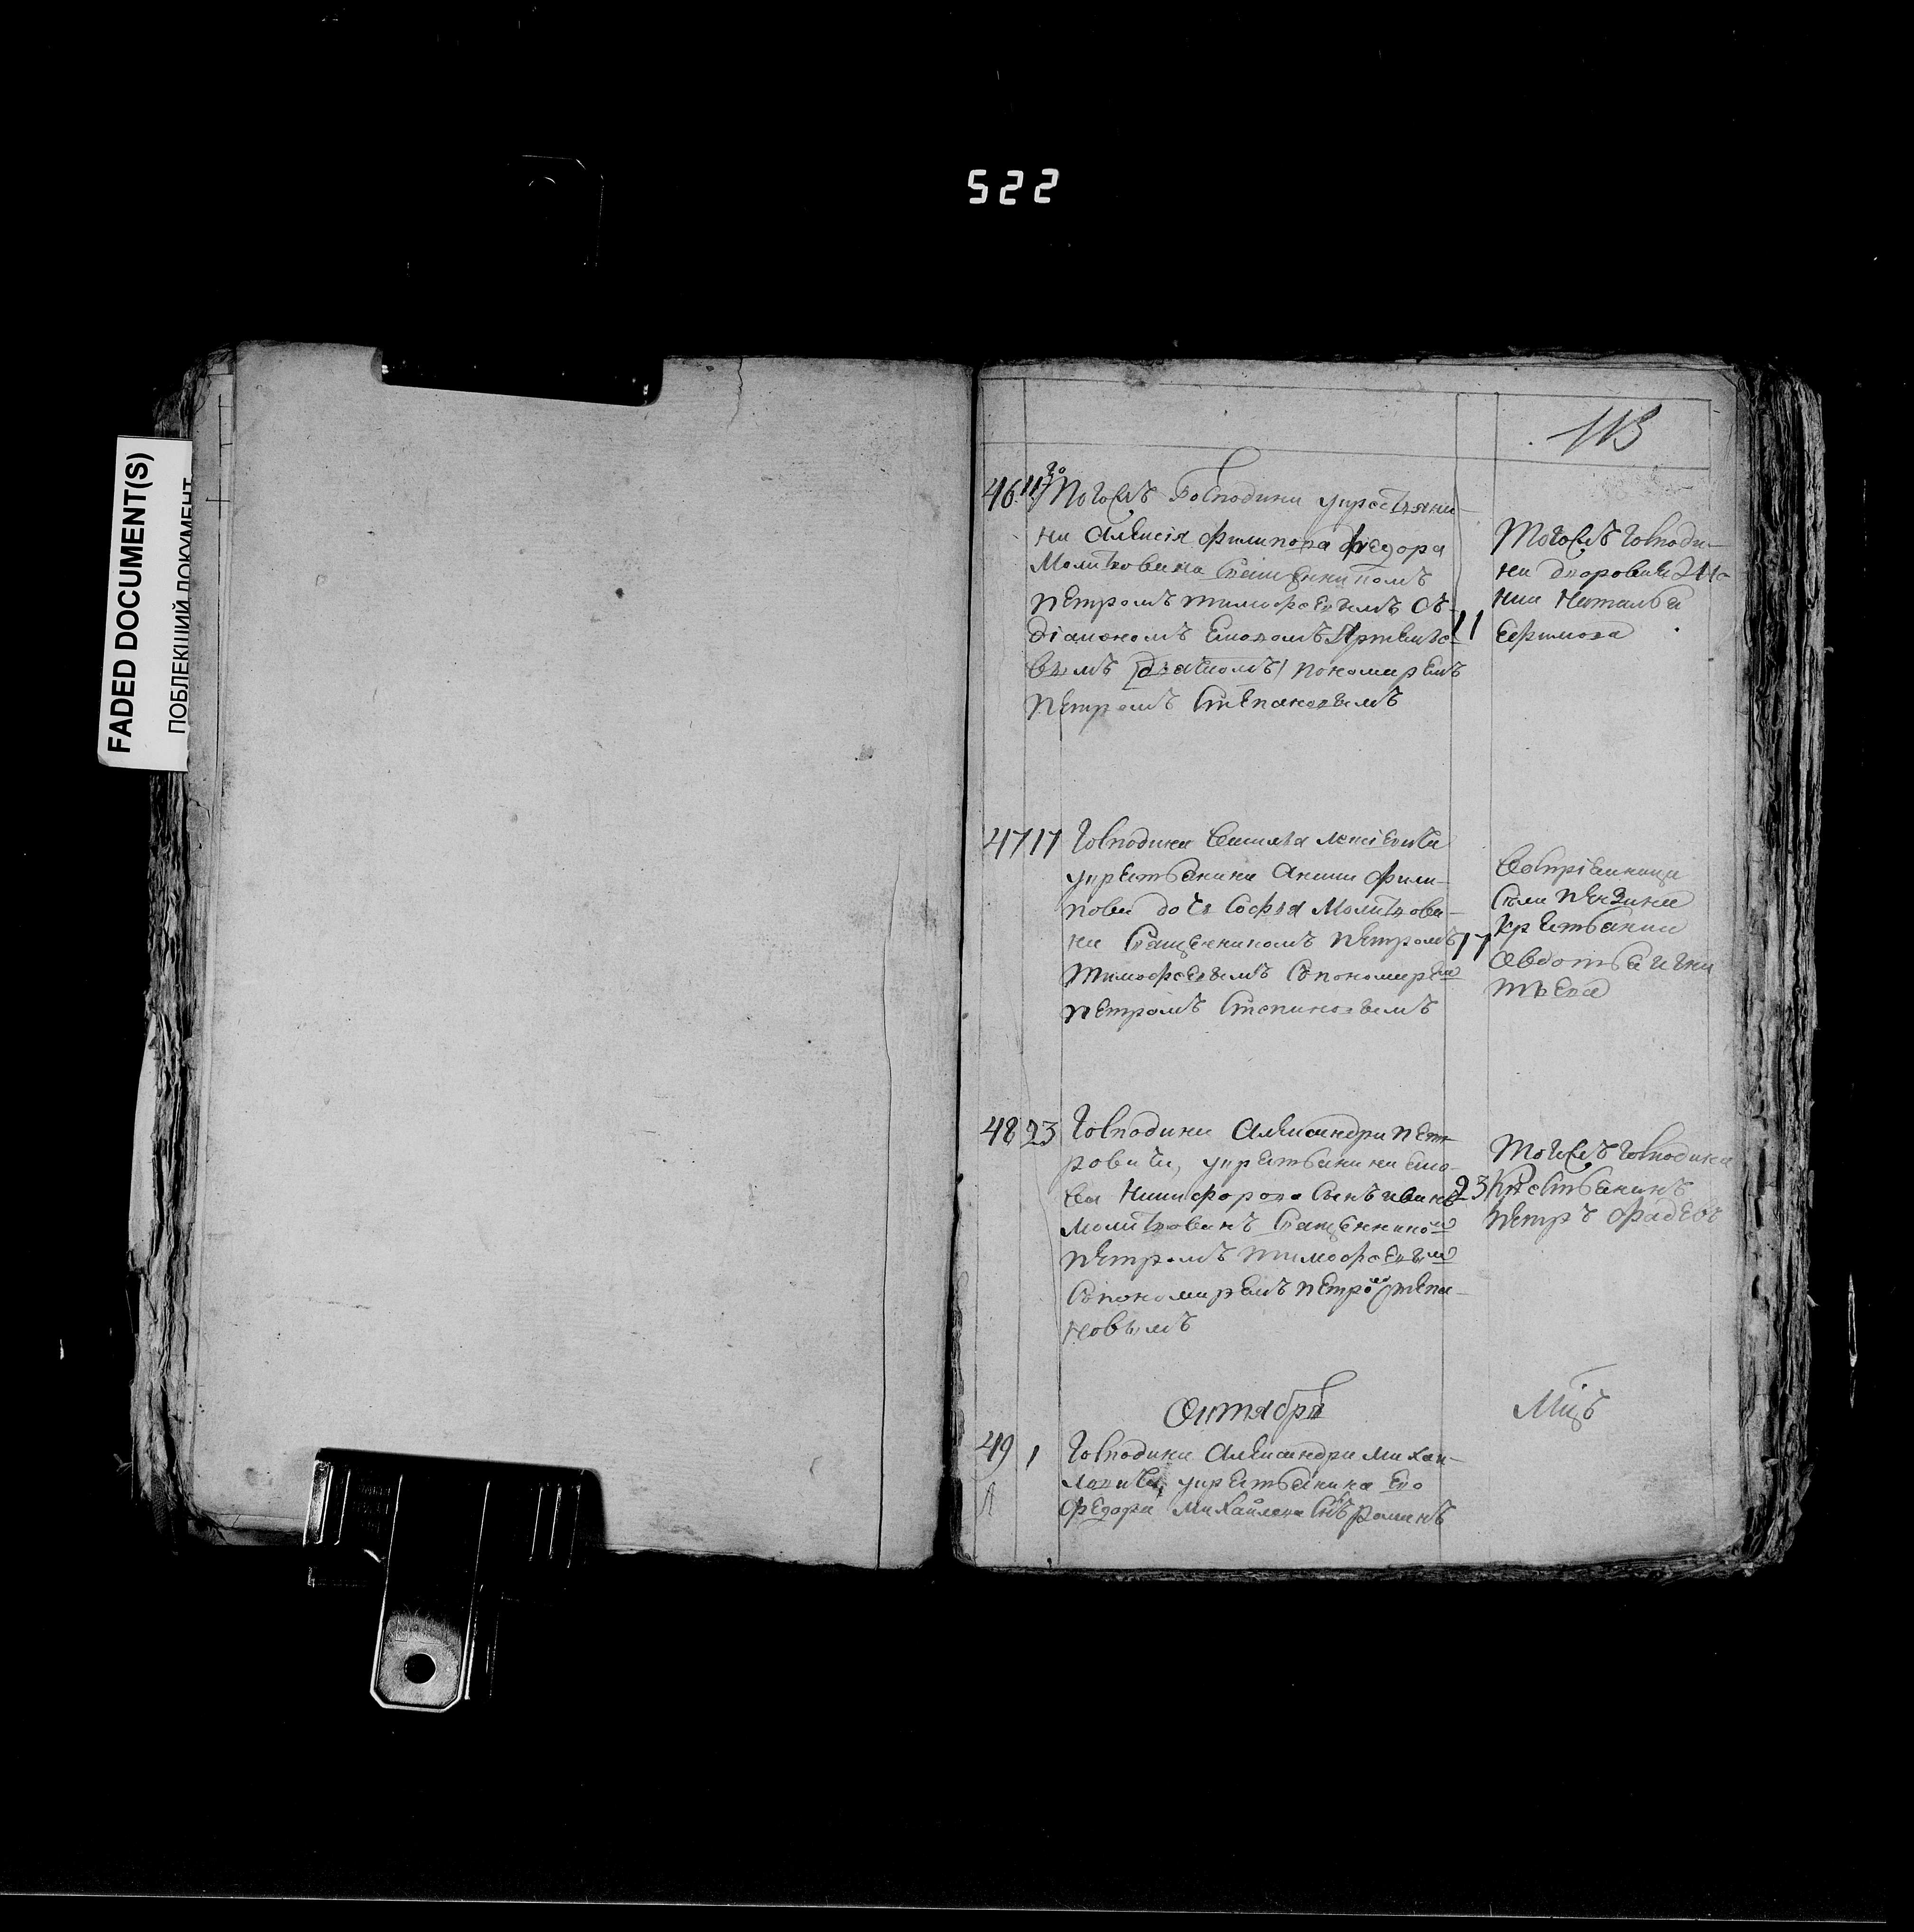 522
FADED DOCUMENT(S)
ПОБЛЕКШИЙ ДОКУМЕНТ
113
46 11го Тогожъ Господина укрестьяни
на Алексія Филипова Федора
Молитвована Священникомъ
Петромъ Тимофеевымъ Съ
діакономъ
вымъ дьячкомъ пономаремъ
Петромъ Степановымъ
11
Тогожъ Господи
на дворовая
Наталья
Ефимова
47 17 Господина
укрестьянина Фили
пова дочь Софья Молитвова
на Священникомъ Петромъ
Тимофеевымъ Съпономаремъ
Петромъ Степановымъ
17
Восприемница
крестьянка
Авдотья
48 23 Господина Александра Пет
ровича, укрестьянина
Никифорова Сынъ Иванъ
молитвованъ Священникомъ
Петромъ Тимофеевымъ
Съпономаремъ Петромъ Степа
новымъ
23
Тогожъ Господина
Крестьянинъ
Петръ Фадеевъ
Октября
Мцъ
49 1 Господина Александра Михаи
ловича, укрестьянина Ево
Федора Михаилова Снъ Романъ